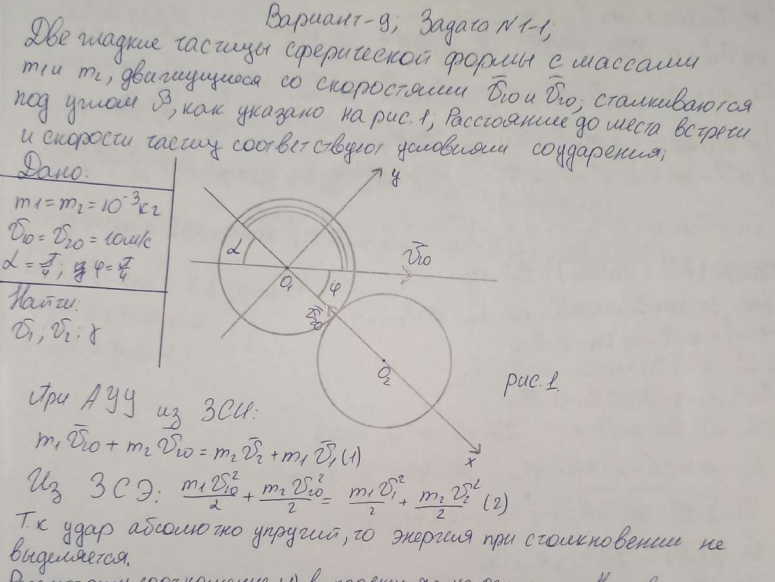 Вариант-9; Задача №1-1;
Две гладкие частицы сферической формы с массами
m1 и m2, движущиеся со скоростями v̄10 и v̄20, сталкиваются
под углом β, как указано на рис.1; Расстояние до места встречи
и скорости частиц соответствуют условиям соударения;
Дано:
m1=m2=10⁻³кг
v̄10=v̄20=10м/с
α=π/4; φ=π/4
Найти:
v̄1; v̄2; γ
y
α
O1
φ
v̄10
v̄20
O2
x
рис.1.
При АУУ из ЗСИ:
m1v̄10+m2v̄20=m2v̄2+m1v̄1(1)
Из ЗСЭ: m1v̄10²/2+m2v̄20²/2=m1v̄1²/2+m2v̄2²/2 (2)
Т.к удар абсолютно упругий, то энергия при столкновении не
выделяется.